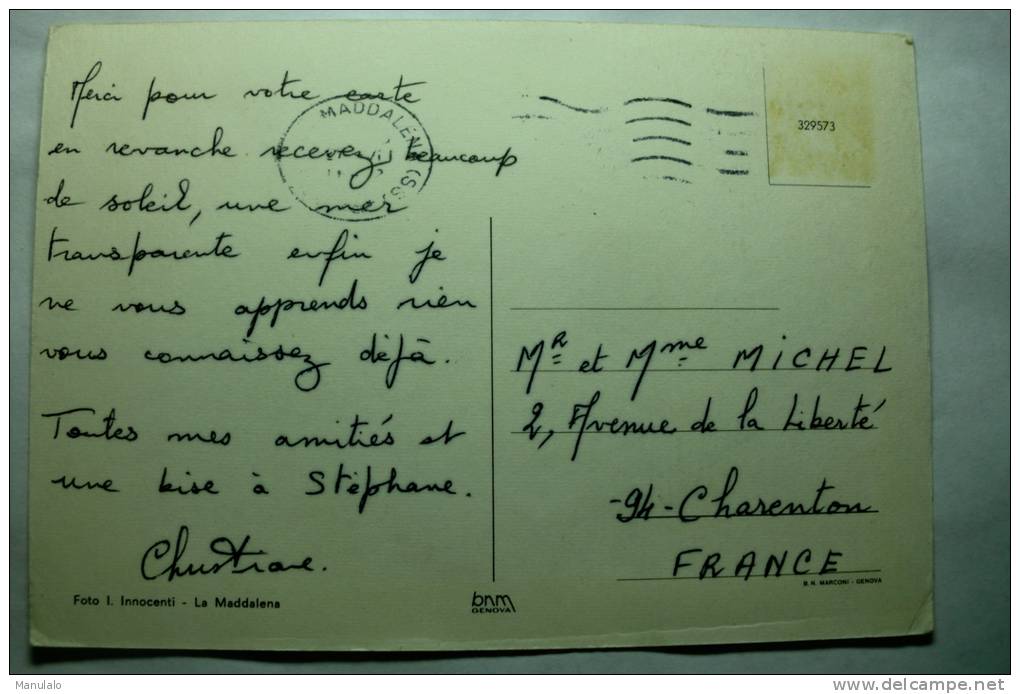 Merci pour votre carte
en revanche recevez, beaucoup
de soleil, une mer
transparente enfin je
ne vous apprends rien
vous connaissez déjà.
Toutes mes amitiés et
une bise à Stéphane.
Christiane.
Foto I. Innocenti - La Maddalena
bnm
GENOVA
MADDALENA (SS)
329573
MR et Mme MICHEL
2, Avenue de la Liberté
-94- Charenton
FRANCE
B. N. MARCONI - GENOVA
Manulalo
www.delcampe.net